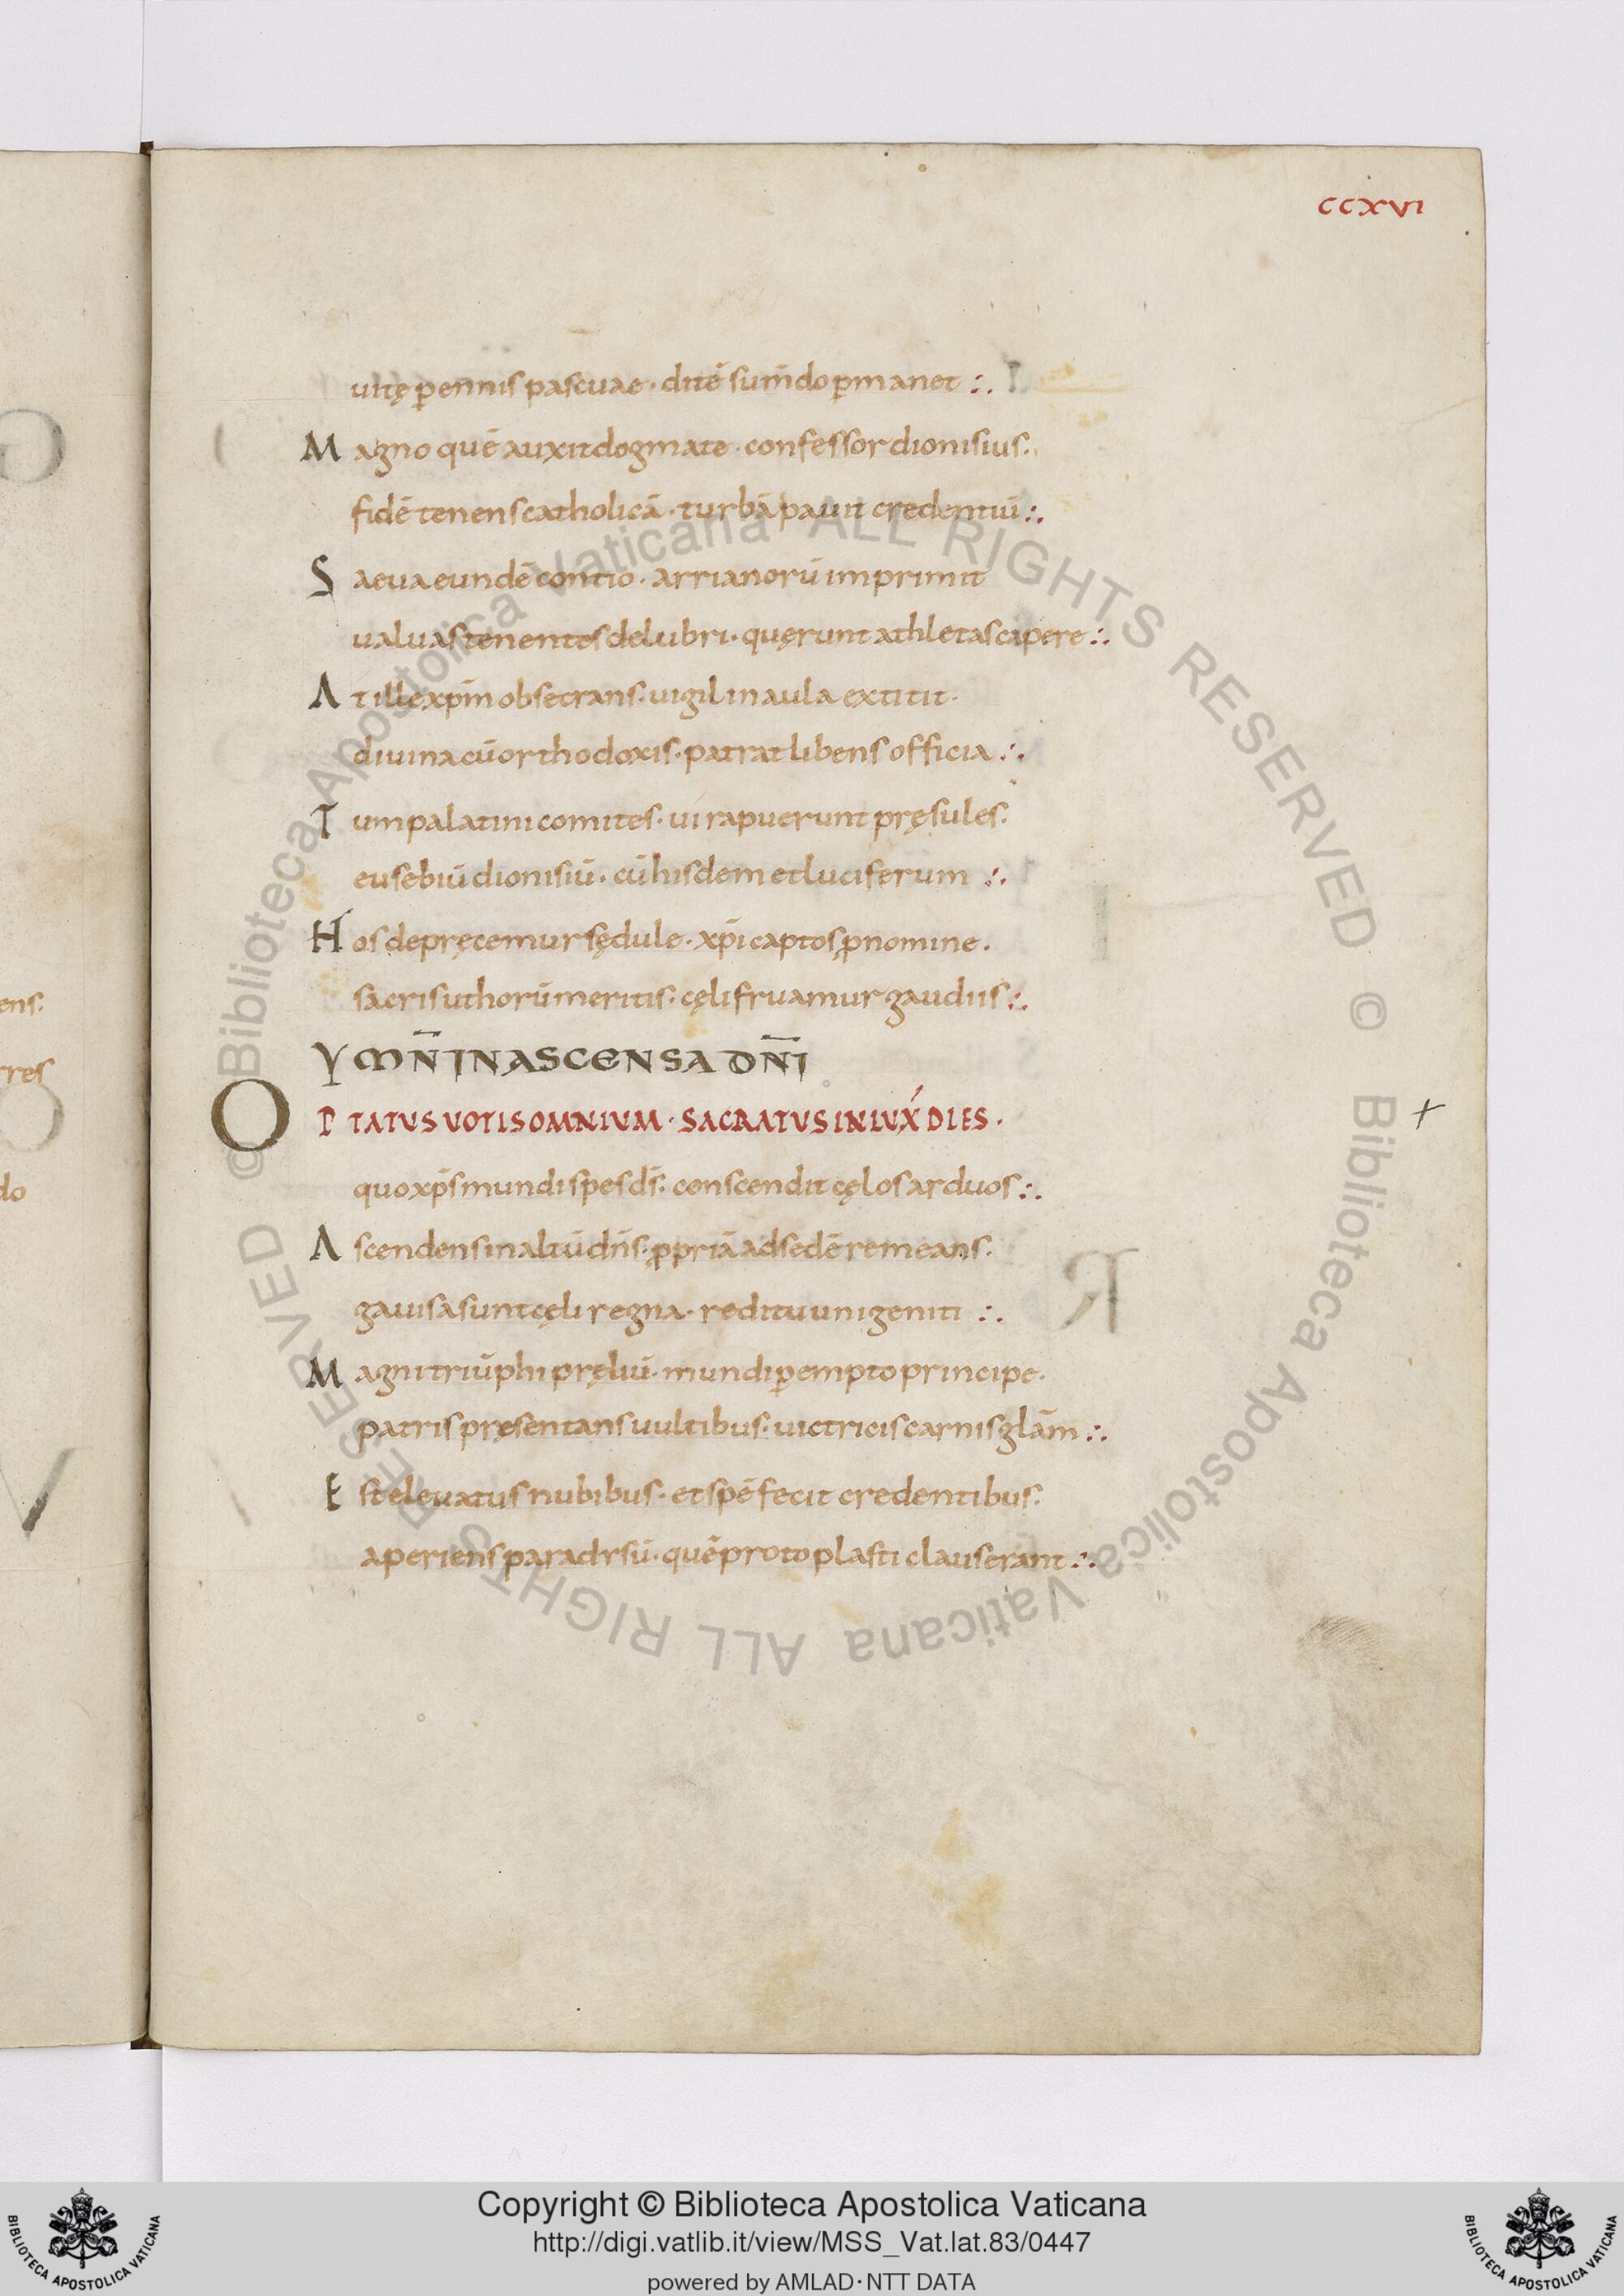 CCXVI
uitę p̄ennis pascuae · ditē sum̄do p̄manet :.
M agno quē auxit dogmate · confessor dionisius.
fidē tenens catholicā · turbā pauit credentiū :.
S aeua eundē contio · arrianorū imprimit
ualuas tenentes delubri · quęrunt athletas capere :.
A t ille xp̄m obsecrans · uigil in aula extitit ·
diuina cū orthodoxis · patrat libens officia :.
T um palatini comites · ui rapuerunt pręsules.
eusebiū dionisiū · cū hisdem et luciferum :.
H os depręcemur sędule · xp̄i captos ꝓ nomine .
sacris ut horū meritis · cęli fruamur gaudiis :.
YMN̄ IN ASCENSA DN̄I
O P TATUS UOTIS OMNIUM · SACRATUS INLUX́ DIES ·
quo xp̄s mundi spes d̄s · conscendit cęlos arduos :.
A scendens in altū dn̄s · ꝓpriā ad sedē remeans.
gauisa sunt cęli regna · reditu unigeniti :.
M agni triūphi pręliū · mundi p̄empto principe.
patris pręsentans uultibus · uictricis carnis glām :.
E st eleuatus nubibus · et spē fecit credentibus.
aperiens paradisū · quē protoplasti clauserant :.
ens.
rres
do
©Biblioteca Apostolica Vaticana ALL RIGHTS RESERVED © Biblioteca Apostolica Vaticana ALL RIGHTS RESERVED
Copyright © Biblioteca Apostolica Vaticana
http://digi.vatlib.it/view/MSS_Vat.lat.83/0447
powered by AMLAD·NTT DATA
BIBLIOTECA APOSTOLICA VATICANA
BIBLIOTECA APOSTOLICA VATICANA